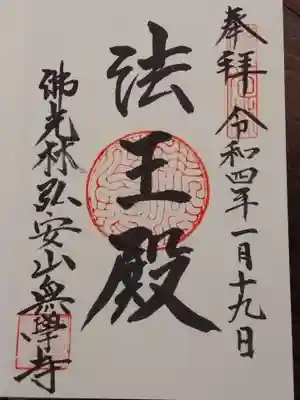 奉拜 令和四年一月十九日
法王殿
佛光林弘安山無學寺